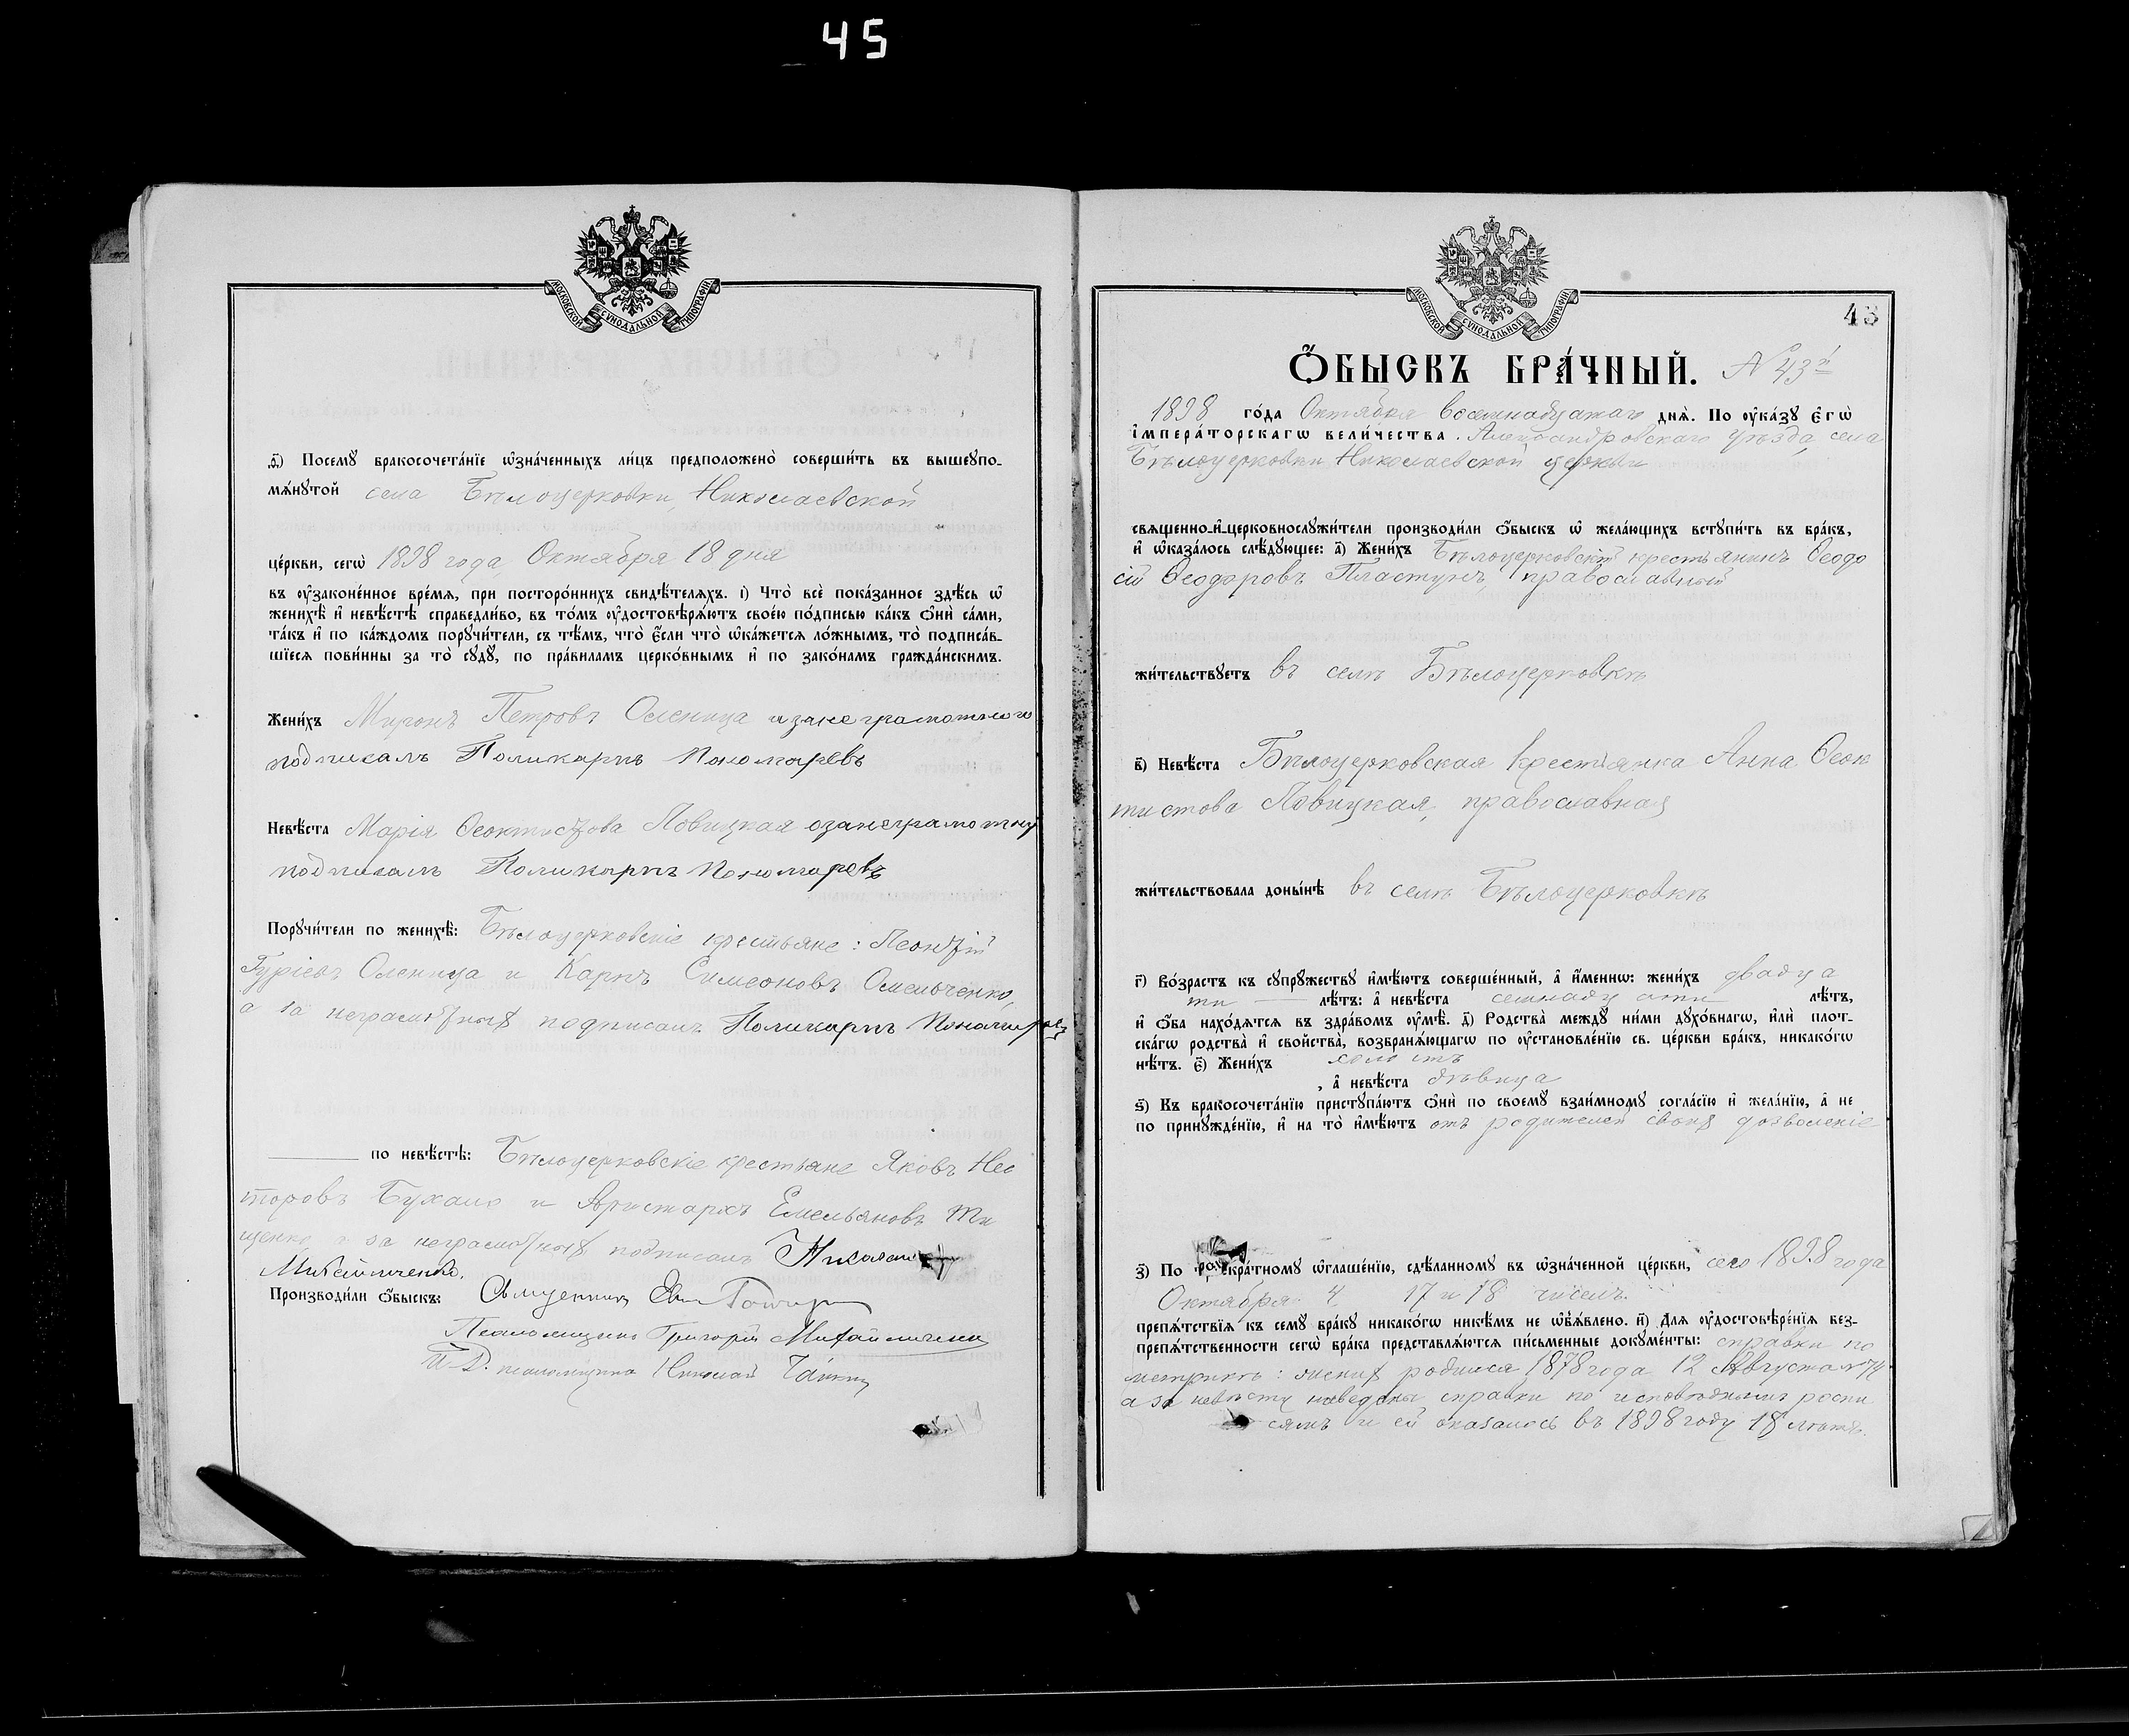 45
МОСКОВСКОЙ СѴНОДАЛЬНОЙ ТИПОГРАФІИ
.ѳ҃.) Посемꙋ бракосочета́нїе ѡ҆зна́ченныхъ ли́цъ предположено̀ соверши́ть въ вышеꙋпо-
мѧ́нꙋтой села Бѣлоцерковки, Николаевской
це́ркви, сегѡ̀ 1898 года, Октября 18 дня
въ ᲂу҆зако́ненное вре́мѧ, при посторо́ннихъ свидѣ́телѧхъ. і҃) Что̀ всѐ пока́занное здѣ́сь ѡ҆
женихѣ̀ и҆ невѣ́стѣ справедли́во, въ то́мъ ᲂу҆достовѣрѧ́ютъ свое́ю по́дписью ка́къ ѻ҆нѝ са́ми,
та́къ и҆ по ка́ждомъ порꙋчи́тели, съ тѣ́мъ, что̀ є҆́сли что̀ ѡ҆ка́жетсѧ ло́жнымъ, то̀ подписа́в-
шїесѧ пови́нны за то̀ сꙋдꙋ̀, по пра́виламъ церко́внымъ и҆ по зако́намъ гражда́нскимъ.
Жени́хъ Миронъ Петровъ Оленица а за не грамотного
подписалъ Поликарпъ Пономаревъ
Невѣ́ста Марія Ѳеоктистова Ловицкая а за неграмотну
подписалъ Поликарпъ Пономаревъ
Порꙋчи́тели по женихѣ̀: Бѣлоцерковскіе крестьяне: Леонтій
Гуріевъ Оленица и Карпъ Симеоновъ Омельченко,
а за неграмотныхъ подписалъ Поликарпъ Пономаревъ
по невѣ́стѣ: Бѣлоцерковскіе крестьяне Яковъ Нес
торовъ Бухало и Аристархъ Емельяновъ Ти
щенко, а за неграмотныхъ подписалъ Николай
Михайличенко.
Производи́ли ѻ҆́быскъ: Священникъ
Псаломщикъ Григорій Михайличенко
И. Д. псаломщика Николай
МОСКОВСКОЙ СѴНОДАЛЬНОЙ ТИПОГРАФІИ
43
Ѻ҆́БЫСКЪ БРА́ЧНЫЙ. N 43й
1898 го́да Октября восемнадцатаго днѧ̀. По ᲂу҆ка́зꙋ є҆гѡ̀
і҆мпера́торскагѡ вели́чества. Александровскаго уѣзда, села
Бѣлоцерковки Николаевской церкви
свѧщенно-и҆-церковнослꙋжи́тели производи́ли ѻ҆́быскъ ѡ҆ жела́ющихъ встꙋпи́ть въ бра́къ,
и҆ ѡ҆каза́лось слѣ́дꙋющее: а҃) Жени́хъ Бѣлоцерковскій крестьянинъ Ѳеодо
сій Ѳеодоровъ Пластунъ, православный
жи́тельствꙋетъ въ селѣ Бѣлоцерковкѣ
в҃) Невѣ́ста Бѣлоцерковская крестьянка Анна Ѳеок
тистова Ловицкая, православная
жи́тельствовала доны́нѣ въ селѣ Бѣлоцерковкѣ
г҃) Во́зрастъ къ сꙋпрꙋ́жествꙋ и҆мѣ́ютъ соверше́нный, а҆ и҆́меннѡ: жени́хъ двадца
ти лѣ́тъ: а҆ невѣ́ста семнадцати лѣ́тъ,
и҆ ѻ҆́ба нахо́дѧтсѧ въ здра́вомъ ᲂу҆мѣ̀. д҃) Родства̀ междꙋ̀ ни́ми дꙋхо́внагѡ, и҆лѝ плот-
ска́гѡ родства̀ и҆ сво́йства̀, возбранѧ́ющагѡ по ᲂу҆становле́нїю св. це́ркви бра́къ, никако́гѡ
нѣ́тъ. є҃) Жени́хъ холостъ
, а҆ невѣ́ста дѣвица
ѕ҃) Къ бракосочета́нїю пристꙋпа́ютъ ѻ҆нѝ по своемꙋ̀ взаи́мномꙋ согла́сїю и҆ жела́нїю, а҆ не
по принꙋжде́нїю, и҆ на то̀ и҆мѣ́ютъ отъ родителей своихъ дозволеніе
з҃) По троекра́тномꙋ ѡ҆глаше́нїю, сдѣ́ланномꙋ въ ѡ҆зна́ченной це́ркви, сего 1898 года
Октября 4 17 и 18 чиселъ.
препѧ́тствїѧ къ семꙋ̀ бра́кꙋ никако́гѡ никѣ́мъ не ѡ҆б̾ѧ́влено. и҃) Длѧ ᲂу҆достовѣре́нїѧ без-
препѧ́тственности сегѡ̀ бра́ка представлѧ́ютсѧ пи́сьменные докꙋме́нты: справки по
метрикѣ: женихъ родился 1878 года 12 Августа № 74
а за невѣсту наведены справки по исповѣднымъ роспи
сямъ и ей оказалось въ 1898 году 18 лѣтъ.